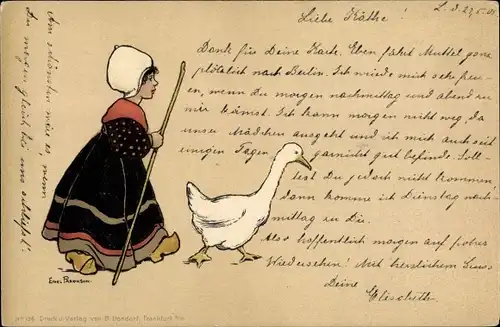 L. d. 27.5.01.
Liebe Käthe!
Dank für Deine Karte. Eben fährt Muttel ganz
plötzlich nach Berlin. Ich würde mich sehr freu-
en, wenn Du morgen nachmittag und abend zu
mir kämst. Ich kann morgen nicht weg, da
unser Mädchen ausgeht und ich mich auch seit
einigen Tagen garnicht gut befinde. Soll-
test Du jedoch nicht kommen,
dann komme ich Dienstag nach-
mittag zu Dir.
Also hoffentlich morgen auf frohes
Wiedersehen! Mit herzlichem Gruss
Deine
Elisabeth.
Am schönsten wäre es wenn
Du morgen gleich bei uns schliefst!
Ethel Parkinson
No 126 Druck u. Verlag von B. Dondorf, Frankfurt a/M